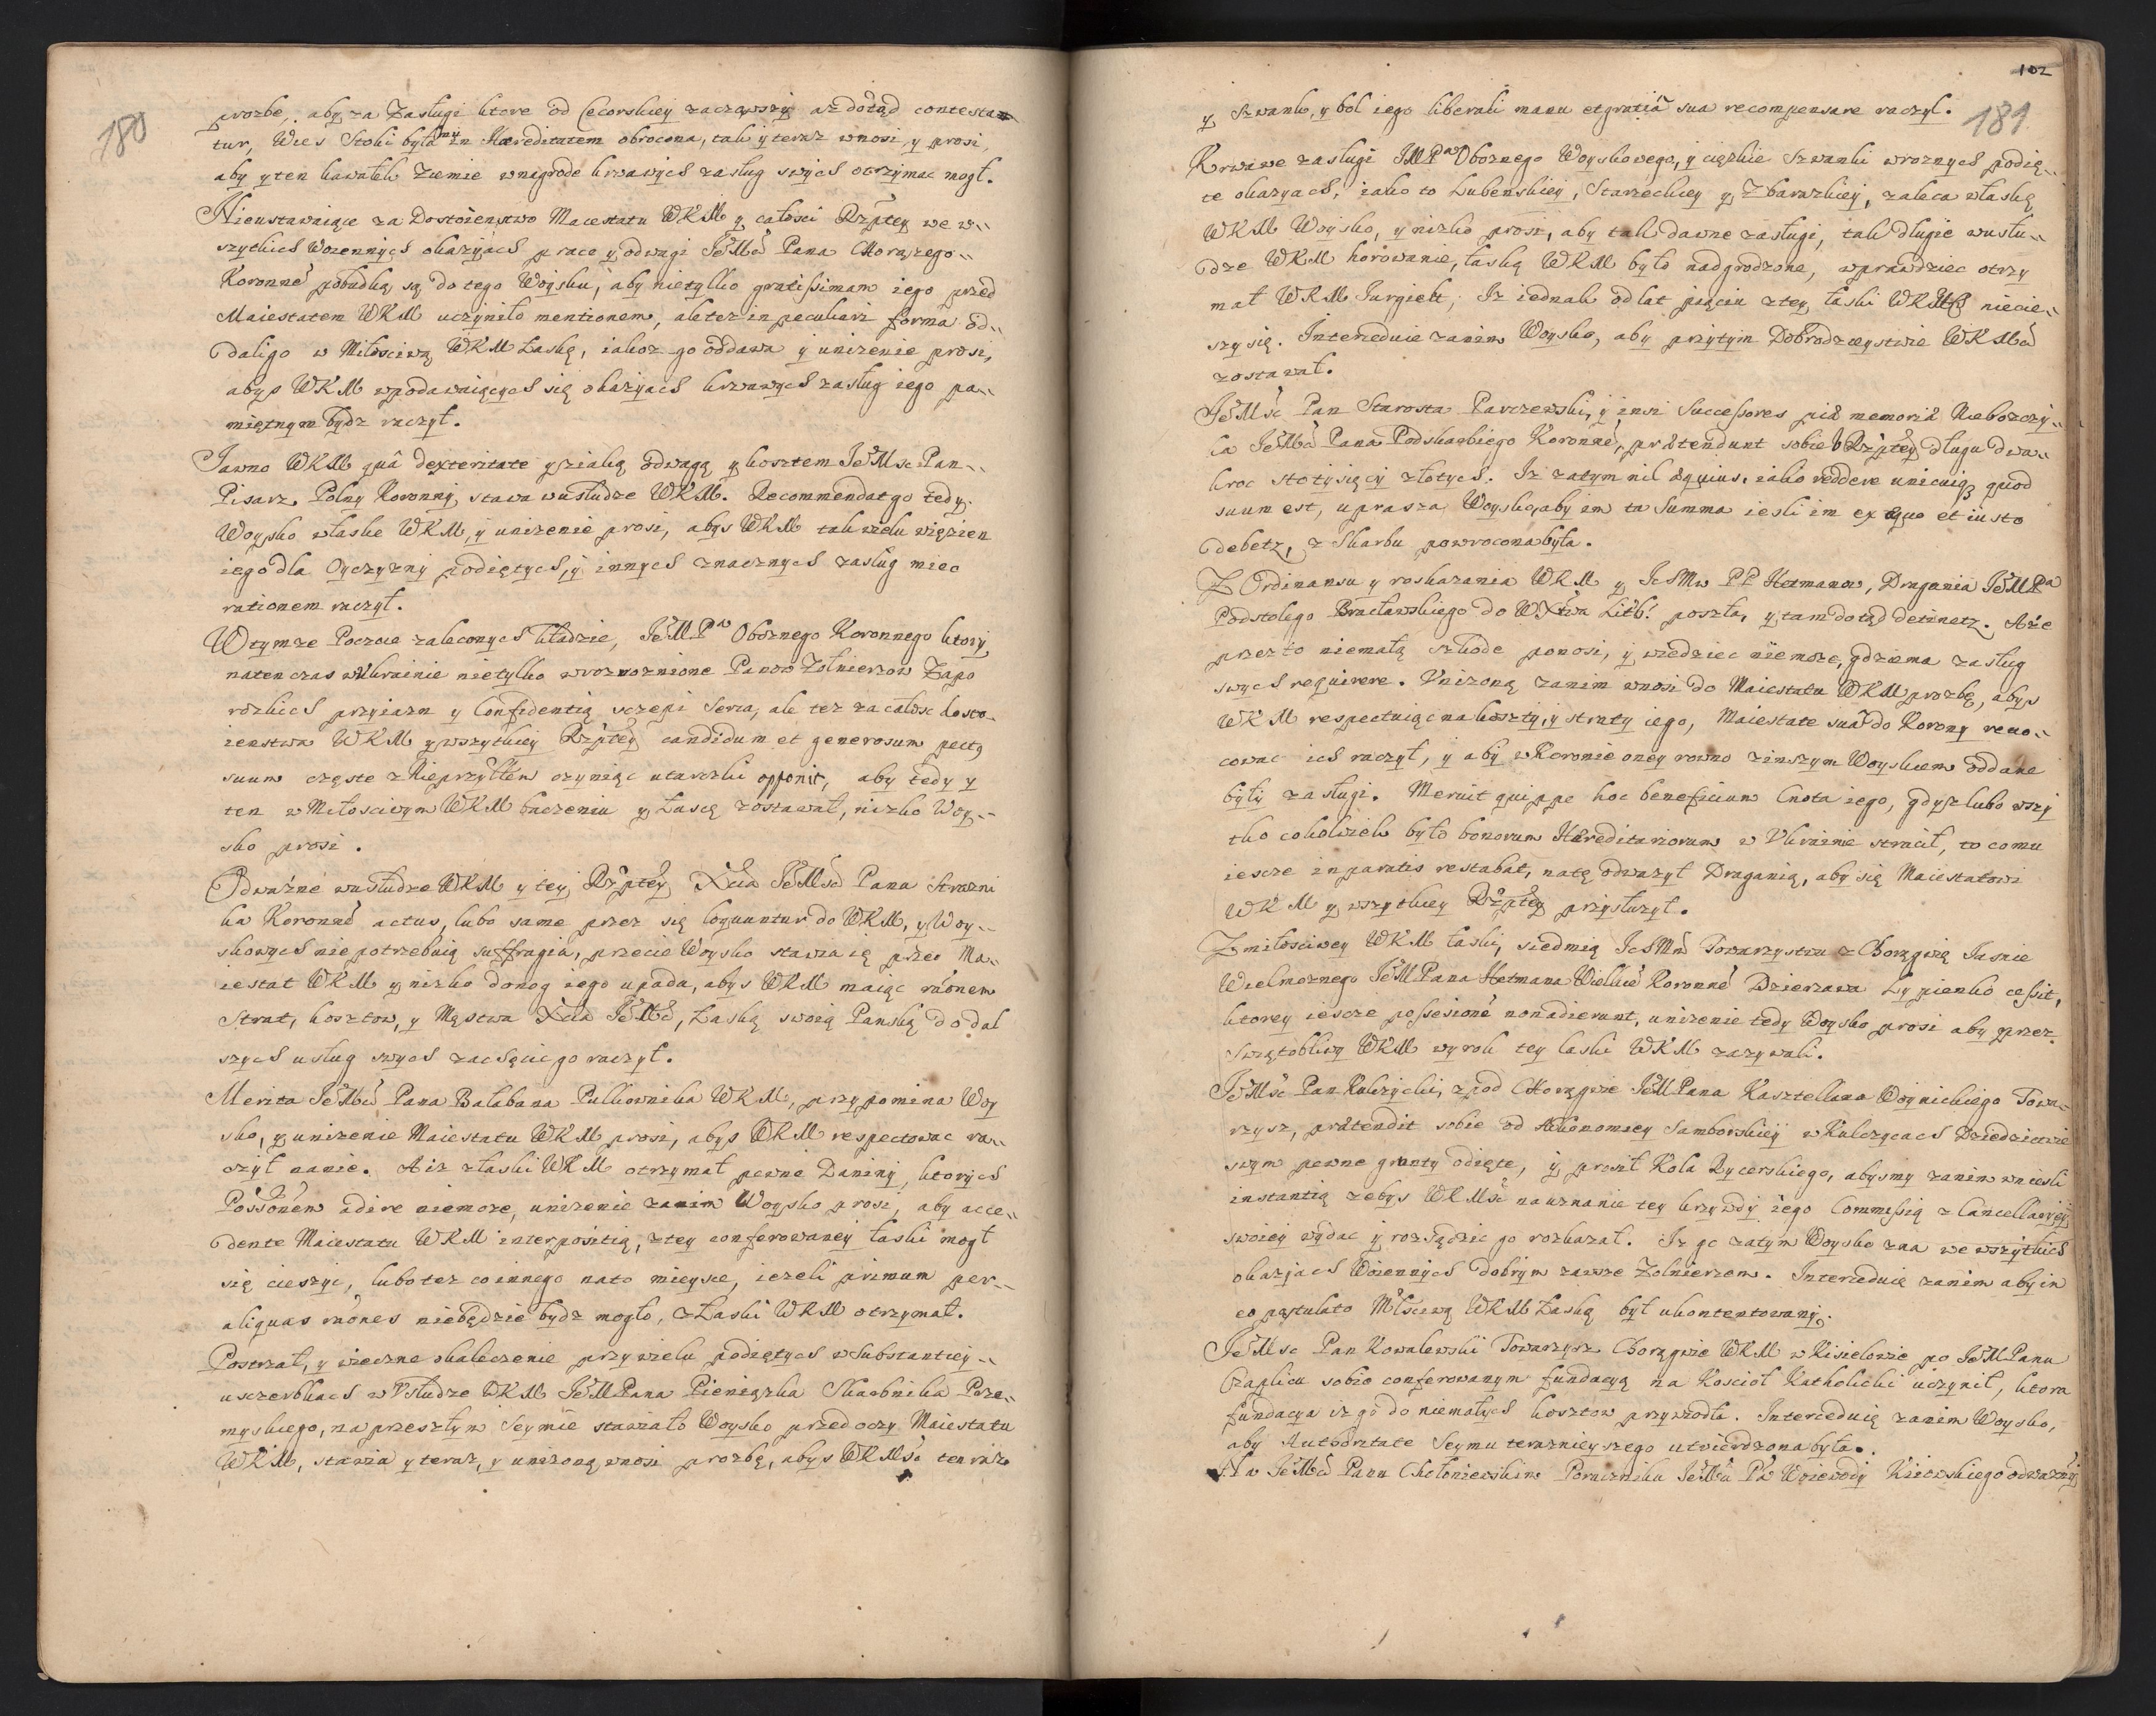 180
prozbe, aby za Zasługi ktore od Cecorskiey zacząwszy az dotąd contestan
tur, Wies Stoki była mu in Haereditatem obrocona, tak y teraz wnosi, y prosi,
aby y ten kawałek Ziemie wnagrode krwawych zasług swych otrzymac mogł.
Nieustawaiące za Dostoienstwo Maiestatu WKM y całosci Rzptey we w„
szytkich Woiennych okazyiach prace y odwagi JeMci Pana Chorązego„
Koronne° pobudką są do tego Woysku, aby nietylko gratissimam iego przed
Maiestatem WKM uczyniło mentionem, ale tez in peculiari forma od„
dali go w Miłosciwą WKM Łaskę, iakoz go oddawa y unizenie prosi,
abys WKM wpodawaiących się okazyiach krwawych zasług iego pa„
miętnym bydz raczył.
Jawno WKM quâ dexteritate y z iaką odwagą y kosztem JeMsc Pan„
Pisarz Polny Koronny, stawa wusłudze WKM. Recommendat go tedy
Woysko właske WKM, y unizenie prosi, abys WKM tak wielu więzien
iego dla Oyczyzny podiętych, y innych znacznych zasług miec
rationem raczył.
Wtymze Poczcie zaleconych kładzie, JeMPa Oboznego Koronnego ktory
natenczas w Ukrainie nietylko wrozroznione Panow Zołnierzow Zapo
rozkich przyiazn y Confidentią sczepi Serca, ale tez za całosc dosto„
ienstwa WKM y wszytkiey Rzptey candidum et generosum pectq
suum częste z Nieprzyłem czyniąc utarczki opponit, aby tedy y
ten w Miłosciwym WKM baczeniu y Łascę zostawał, nizko Woy„
sko prosi.
Odwazne wusłudze WKM y tey Rzptey Xcia JeMsci Pana Strazni
ka Koronne° actus, lubo same przez się loquuntur do WKM, y Woy„
skowych nie potrzebuią suffragia, przecie Woysko stawia ię przed Ma„
iestat WKM y nizko do nog iego upada, abys WKM maiąc raonem
Strat, kosztow, y Męstwa Xcia JeMci, Łaską swoią Panską do dal
szych usług swych zachęcic go raczył.
Merita JeMci Pana Bałabana Pułkownika WKM, przypomina Woy
sko, y unizenie Maiestatu WKM prosi, abys WKM respectowac ra„
czył nanie. A iz z łaski WKM otrzymał pewne Daniny, ktorych
Possonem adire niemoze, unizenie zanim Woysko prosi, aby acce„
dente Maiestatu WKM interpositią, z tey conferowaney łaski mogł
się cieszyc, lubo tez co innego nato mieysce, iezeli primum per„
aliquas raones niebędzie bydz mogło, z Łaski WKM otrzymał.
Postrzał, y wieczne okaleczenie przy wielu podiętych w Substantiey„
usczerbkach w Usłudze WKM JeMPana Pieniązka Skarbnika Prze„
myskiego, na przeszłym Seymie stawiało Woysko przed oczy Maiestatu
WKM, stawia y teraz, y unizoną wnosi prozbę, abys WKMsc ten iego
102
181
y Szwank, y bol iego liberali manu et gratiâ sua recompensare raczył.
Krwawe zasługi JMPa Oboznego Woyskowego, y ciężkie Szwanki wroznych podię„
te okazyach, iako to Lubenskiey, Starzeckiey y Zbarazkiey, zaleca właskę
WKM Woysko, y nizko prosi, aby tak dawne zasługi, tak długie wusłu„
dze WKM horowanie, łaską WKM było nadgrodzone, wprawdziec otrzy
mał WKM Jurgielt, Iz iednak od lat pięciu z tey łaski WKM niecie„
szy się. Intercedule zanim Woysko, aby przytym Dobrodzieystwie WKMci
zostawał.
JeMsc Pan Starosta Parczewski, y insi Successores piae memoriae Nieboszczy„
ka JeMci Pana Podskarbiego Koronne°, praetendunt sobie u Rzptey długu dwa„
kroc sto tysięcy złotych. Iz zatym nil aequius, iako reddere unicuiq quod
suum est, uprasza Woysko, aby im ta Summa iesli im ex aequo et iusto
debetz, z Skarbu powrocona była.
Z Ordinansu y roskazania WKM y IchMw PP Hetmanow, Dragania JeMPa
Podstolego Bracławskiego do WXtwa Litt° poszła, y tam dotąd detinetz. A ze
przez to niemałą szkode ponosi, y wiedziec niemoze, gdzie ma zasług
swych requirere. Unizoną zanim wnosi do Maiestatu WKM prozbę, abys
WKM respectuiąc na koszty, y straty iego, Maiestate suâ do Korony revo„
cowac ich raczył, y aby w Koronie oney rowno z inszym Woyskiem oddane
były zasługi. Meruit quippe hoc beneficium Cnota iego, gdysz lubo wszy
tko cokolwiek było bonorum Haereditariorum w Ukrainie stracił, to co mu
iescze in paratis restabat, natę odwazył Draganią, aby się Maiestatowi
WKM y wszytkiey Rzptey przysłuzył.
Z miłosciwey WKM łaski, siedmią IchMci Towarzystwu z Chorągwię Jasnie
Wielmoznego JeMPana Hetmana Wielkie° Koronne° Dzierzawa Łypienko cessit,
ktorey iescze possesione non adierunt, unizenie tedy Woysko prosi aby przez
Swiątobliwy WKM wyrok tey łaski WKM zazywali.
JeMsc Pan Kulczycki, z pod Chorągwie JeMPana Kasztellana Woynickiego Towa„
rzysz, praetendit sobie od Aekonomiey Samborskiey w Kulczycach Dziedzictwie
swym pewne grunty odięte, y prosił Koła Rycerskiego, abysmy zanim wniesli
instantią zebys WKMsc na uznanie tey krzywdy iego Commissią z Cancellaryey
swoiey wydac y rozsądzic go rozkazał. Iz go zatym Woysko zna we wszytkich
okazjach Woiennych dobrym zawsze Zołnierzem. Interceduię zanim aby in
eo postulato Młsciwą WKM Łaską był ukontentowany.
JeMsc Pan Kowalewski Towarzysz Chorągwie WKM w Kisielowie po JeMPanu
Czaplicu sobie conferowanym fundacyą na Kosciół Katholicki uczynił, ktora
fundacya iz go do niemałych kosztow przywiodła. Interceduię zanim Woysko,
aby Authoritate Seymu teraznieyszego utwierdzona była.
A w JeMci Panu Chołoniewskim Poruczniku JeMci Pa Woiewody Kiiowskiego odwazny